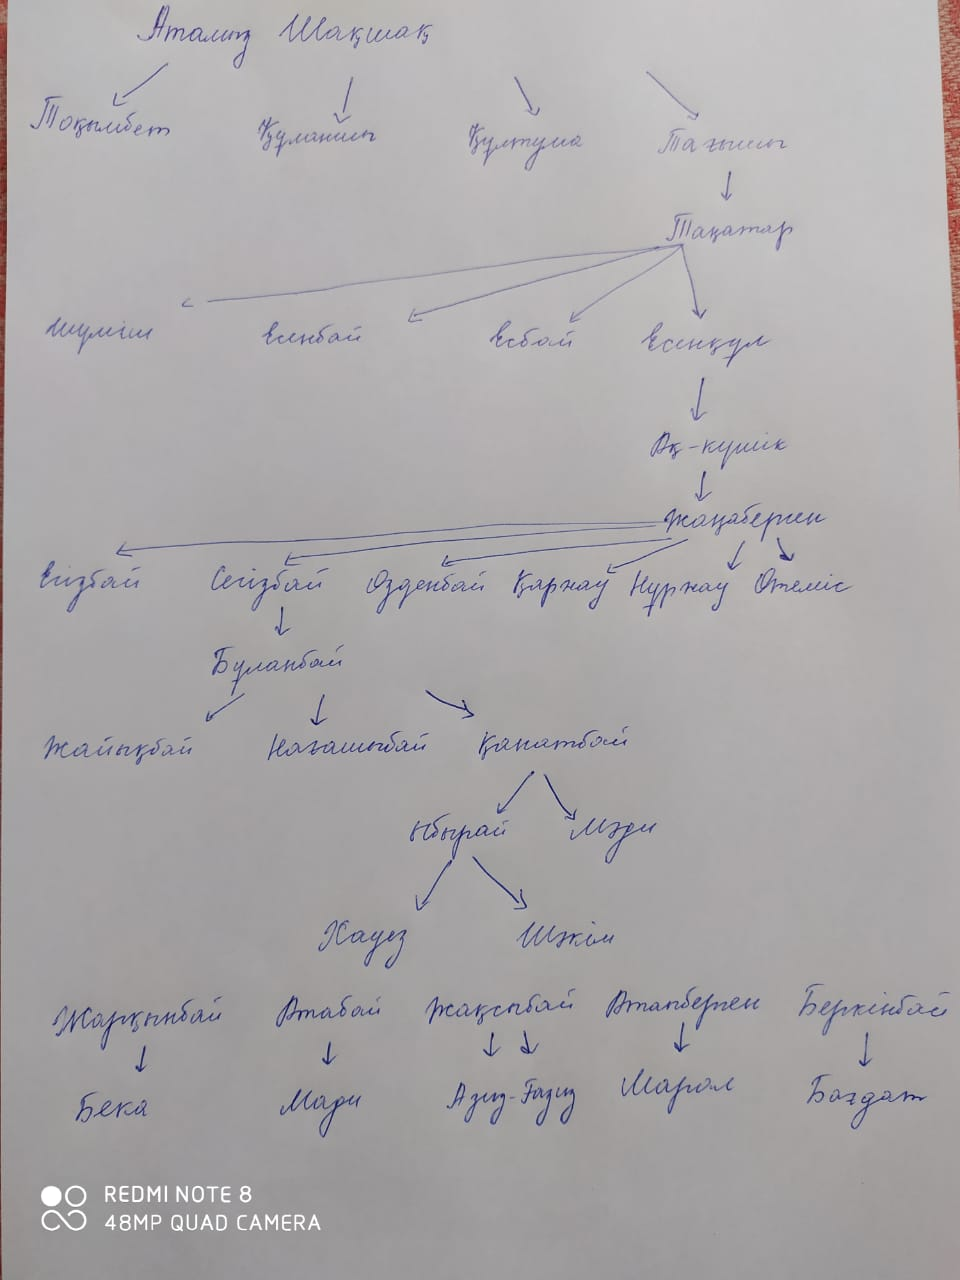 Аталығ Шақшақ
Тоқымбет Құлманшы Құлтума Тағышы
Тақатар
Шуміш Есенбай Есбай Есенқұл
Ақ-күшік
Жаңаберген
Егізбай Сегізбай Озденбай Қарнау Нұрнау Өтеміс
Бұланбай
Жайықбай Нағашыбай Қанатбай
Ыбырай Мәди
Хауез Шәкім
Жарқынбай Атабай Жақсыбай Атанберген Беркінбай
Бека Мади Азиз-Ғазиз Марал Бағдат
REDMI NOTE 8
48MP QUAD CAMERA